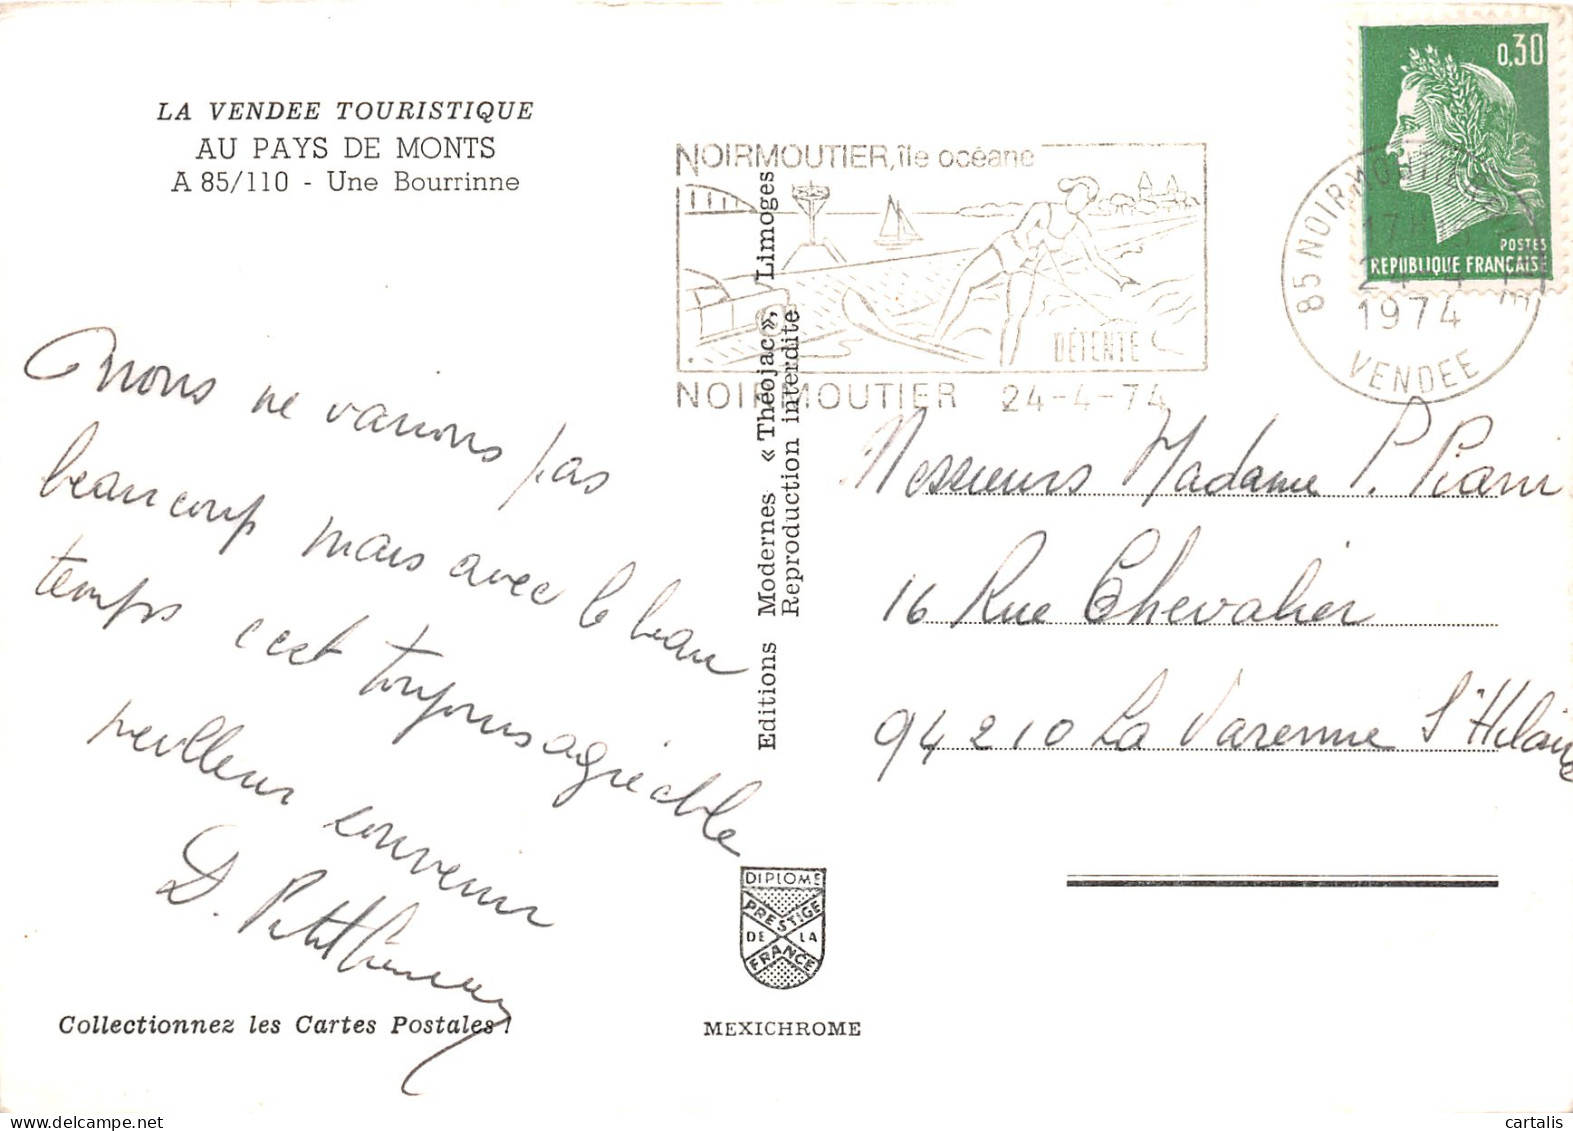 LA VENDEE TOURISTIQUE
AU PAYS DE MONTS
A 85/110 - Une Bourrinne
NOIRMOUTIER, île océane
DÉTENTE
NOIRMOUTIER 24-4-74
85 NOIRMOUTIER
17H
24-4
1974
VENDEE
0,30
POSTES
REPUBLIQUE FRANÇAISE
nous ne varions pas
beaucoup mais avec le beau
temps c'est toujours agréable
meilleur souvenir
D. Petit
Collectionnez les Cartes Postales !
Editions Modernes « Théojac », Limoges
Reproduction interdite
DIPLOME
PRESTIGE
DE LA
FRANCE
MEXICHROME
Messieurs Madame P.
16 Rue Chevalier
94210 La Varenne St Hilaire
cartalis